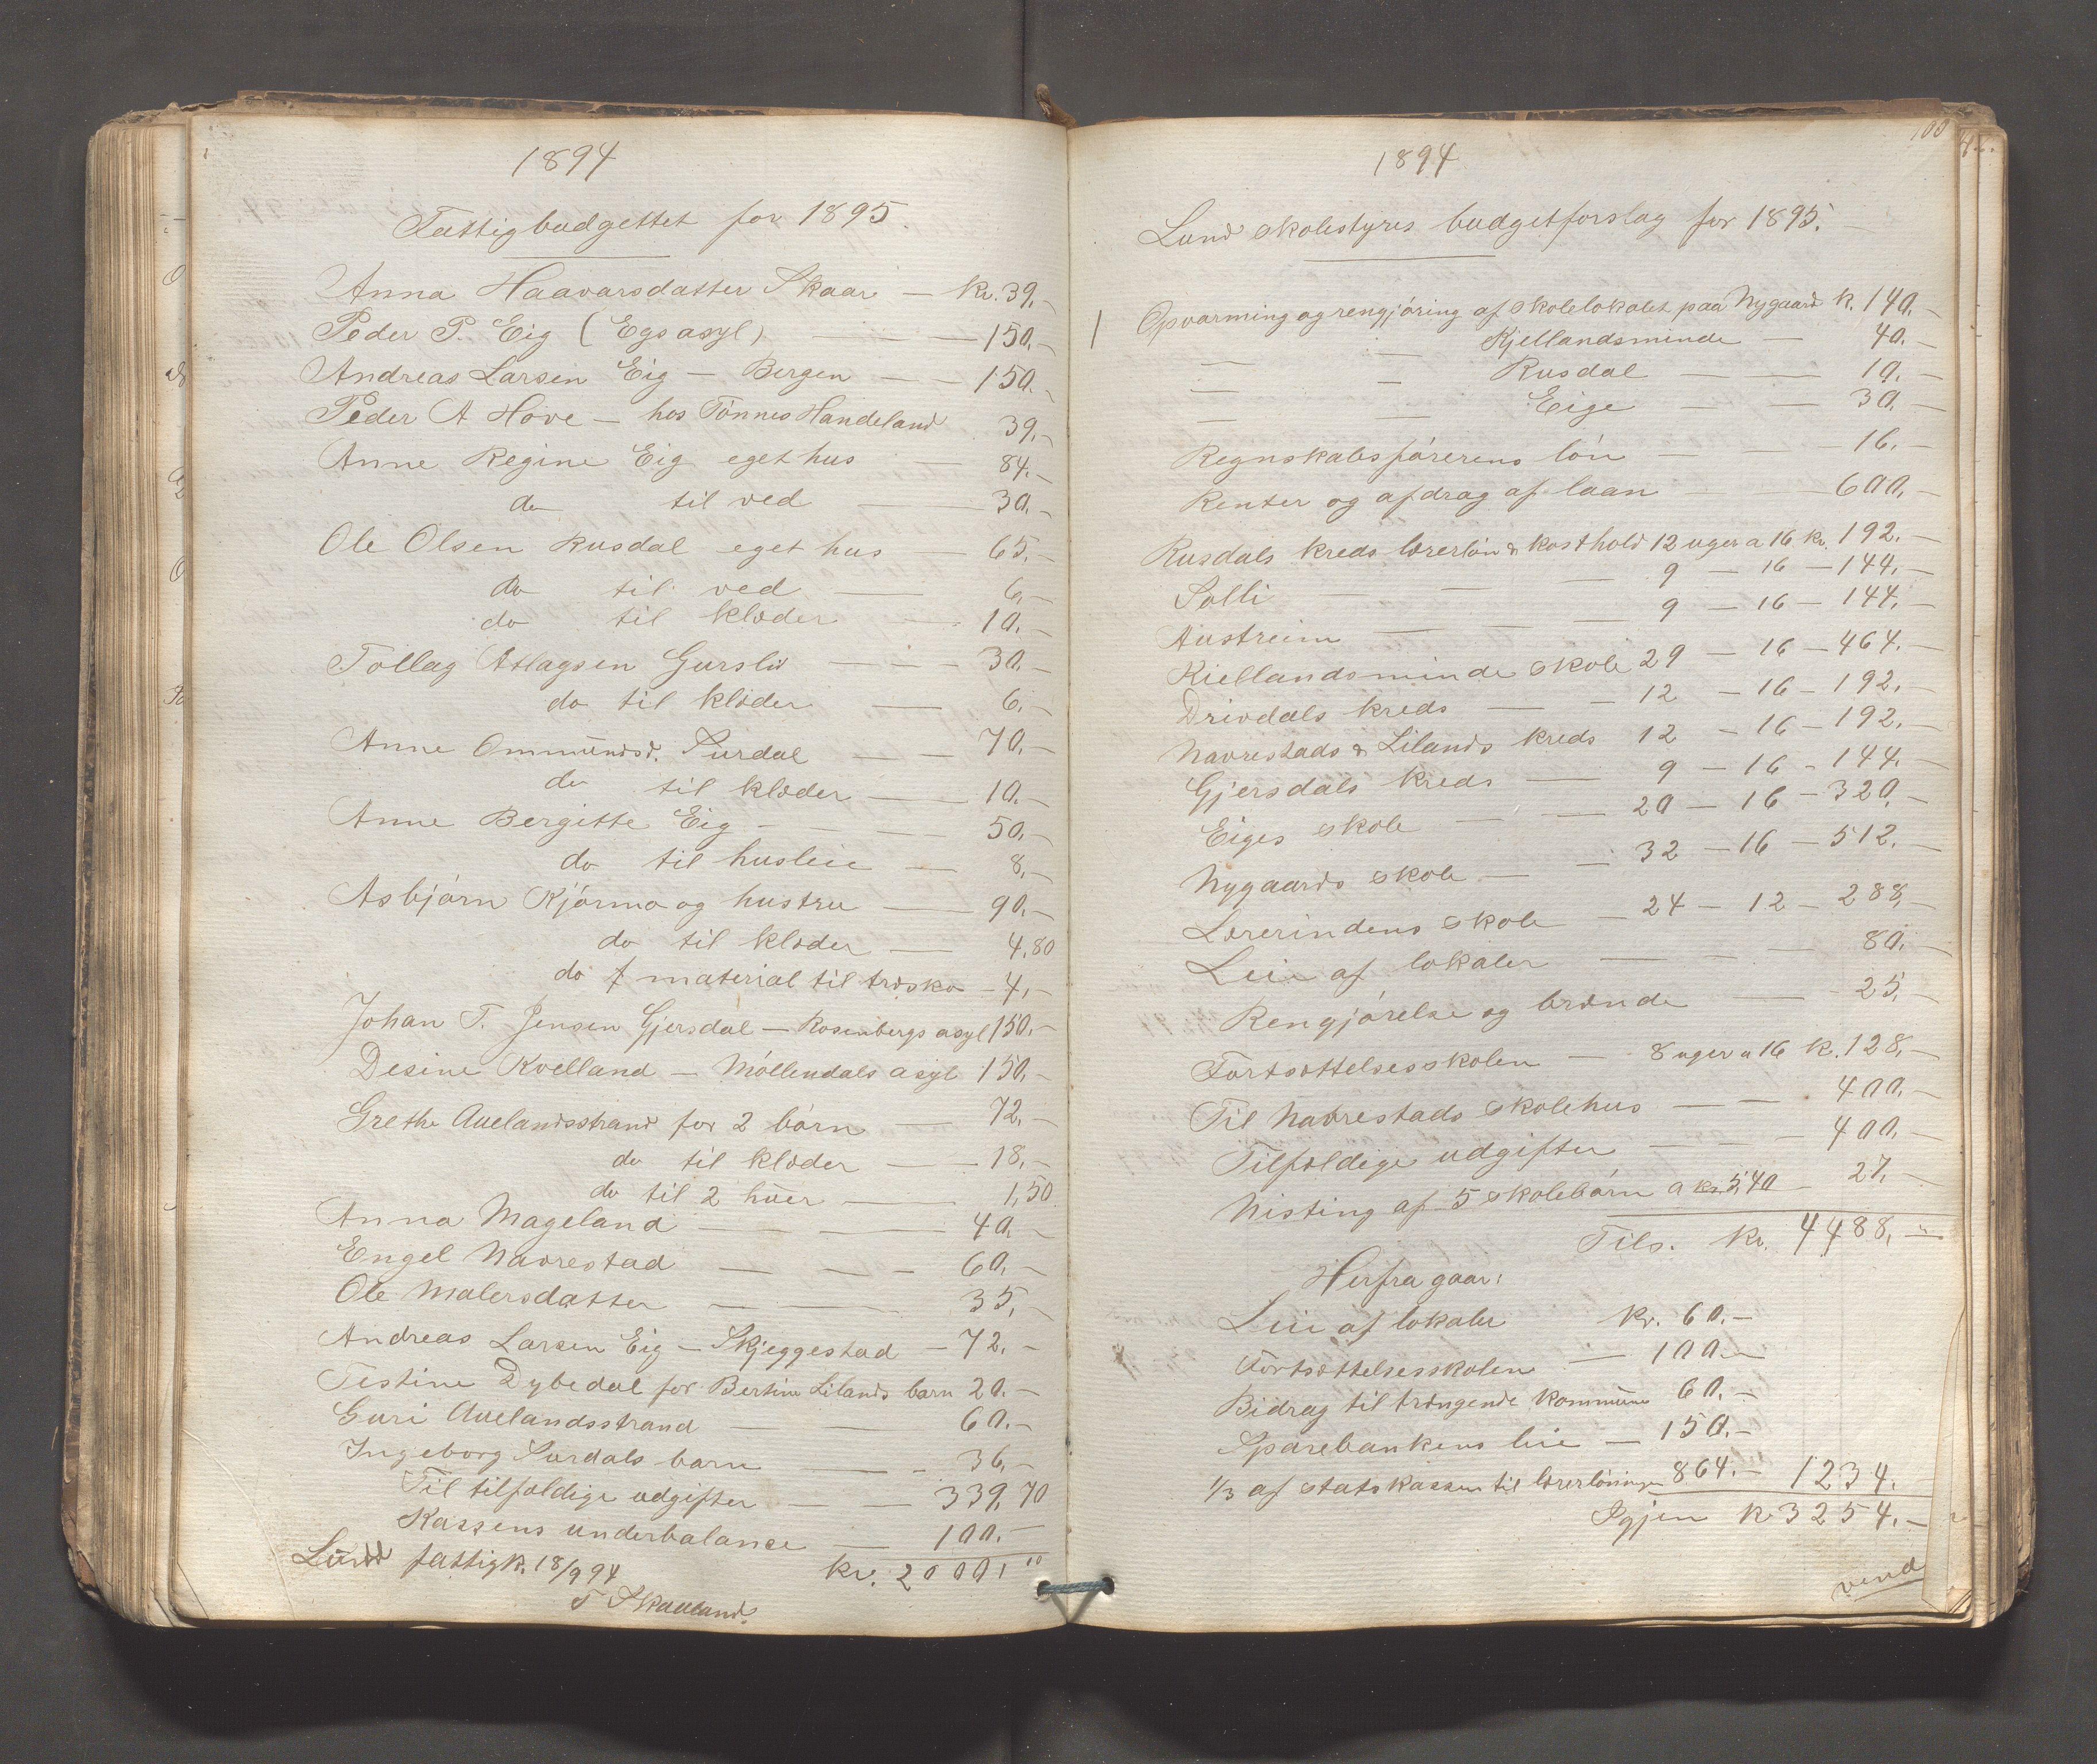 1894
Fattigbudgettet for 1895.
Anna Haavarsdatter Skaar — Kr. 39,-
Peder P. Eig (Egs asyl) — — — 150,-
Andreas Larsen Eig — Bergen — — 150,-
Peder A Hove — hos Tönnes Handeland 39,-
Anne Regine Eig eget hus — 84.-
do til ved — 30,-
Ole Olsen Rusdal eget hus — 65,-
do til ved — 6,-
do til klæder — 10,-
Tollag Atlagsen Gursli — — — 30,-
do til klæder — 6,-
Anne Ommundsd. Surdal — — 70,-
do til klæder — 10,-
Anne Bergitte Eig — — — 50,-
do til husleie — 8,-
Asbjörn Kjörmo og hustru — 90,-
do til klæder — 4,80
do f material til træsko — 4,-
Johan T. Jensen Gjersdal — Rosenbergs asyl 150,-
Desine Kvelland — Möllendals asyl 150,-
Grethe Auelandsstrand for 2 börn — 72,-
do til klæder — 18,-
do til 2 huer — 1,50
Anna Mageland — — — 40,-
Engel Navrestad — — — 60,-
Ole Malersdatter — — 35,-
Andreas Larsen Eig — Skjeggestad — 72,-
Testine Dybedal for Bertine Lilands barn 20.-
Guri Auelandsstrand — — 60.-
Ingeborg Surdals barn — — 36,-
Til tilfældige udgifter — — 339,70
Kassens underbalance — 100.-
kr. 2000,00
Lund fattigk. 18/9 94
T Skaaland.
100
1894
Lund skolestyres budgetforslag for 1895.
Opvarming og rengjöring af skolelokalet paa Nygaard k. 140,-
— — Kjellandsminde — 40,-
— — Rusdal — — 10,-
— — Eige — — 30,-
Regnskabsförerens lön — — 16,-
Renter og afdrag af laan — — 600,-
Rusdals kreds lærerlön & kosthold 12 uger a 16 kr. 192.-
Solli — — — 9 — 16 — 144,-
Austreim — — — 9 — 16 — 144,-
Kiellandsminde skole 29 — 16 — 464,-
Drivdals kreds — — 12 — 16 — 192,-
Navrestads & Lilands kreds 12 — 16 — 192,-
Gjersdals kreds — 9 — 16 — 144,-
Eiges skole — — 20 — 16 — 320,-
Nygaards skole — — 32 — 16 — 512,-
Lærerindens skole — 24 — 12 — 288,-
Leie af lokaler — — — 80,-
Rengjörelse og brænde — 25,-
Fortsættelsesskolen — 8 uger a 16 k. 128,-
Til Navrestads skolehus — — 400,-
Tilfældige udgifter — — — 400,-
Nisting af 5 skolebörn a kr 5,40 — 27,-
Tils. kr. 4488,-
Herfra gaar:
Leie af lokaler kr. 60.-
Fortsættelsesskolen — 100.-
Bidrag til trængende kommune 60,-
Sparebankens leie — 150,-
1/3 af statskassen til lærerlöninger 864.- 1234.-
Igjen k 3254.-
vend